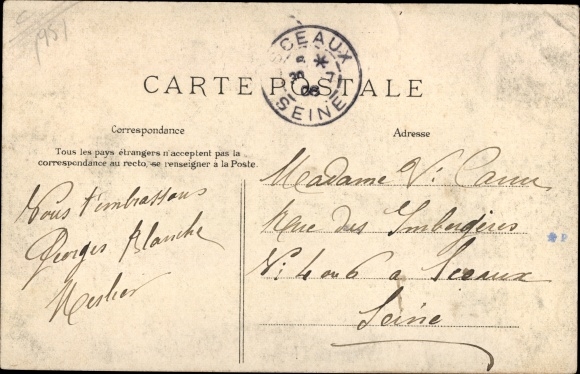 1981
SCEAUX
SEINE
CARTE POSTALE
Correspondance
Tous les pays étrangers n'acceptent pas la
correspondance au recto, se renseigner à la Poste.
Nous t'embrassons
Georges Blanche
Adresse
Madame Vve
Rue des Imbergères
No 4 ou 6 à Sceaux
Seine